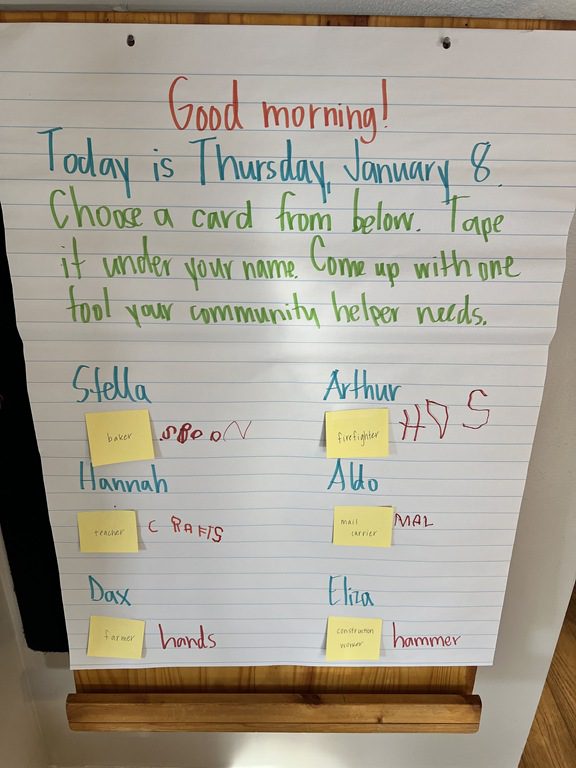 Good morning!
Today is Thursday, January 8.
Choose a card from below. Tape
it under your name. Come up with one
tool your community helper needs.
Stella Arthur
baker SPOON firefighter HOS
Hannah Aldo
teacher CRAFTS mail carrier MAL
Dax Eliza
farmer hands construction worker hammer